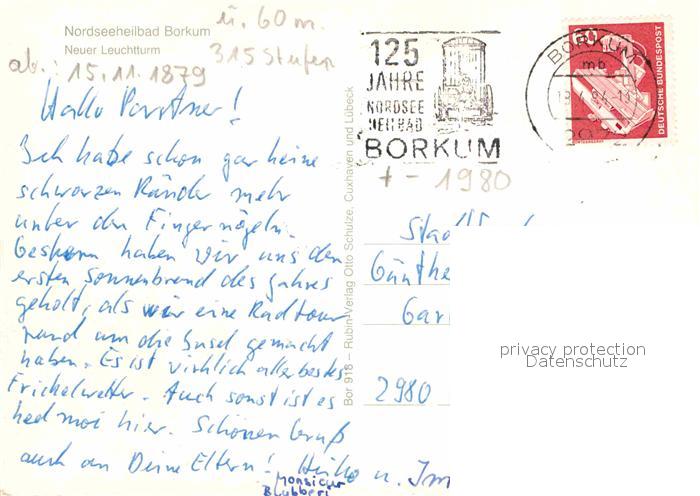 Nordseeheilbad Borkum
Neuer Leuchtturm
ü. 60 m.
315 Stufen
ab.: 15.11.1879
125
JAHRE
NORDSEE
HEILBAD
BORKUM
BORKUM
mb
60
DEUTSCHE BUNDESPOST
+ - 1980
Hallo Partner!
Ich habe schon gar keine
schwarzen Ränder mehr
unter den Fingernägeln.
Gestern haben wir uns den
ersten Sonnenbrand des Jahres
geholt, als wir eine Radtour
rund um die Insel gemacht
haben. Es ist wirklich allerbestes
Frickelwetter. Auch sonst ist es
hier. Schönen Gruß
auch an Deine Eltern! Heiko u.
Monsieur
Blubber!
Bor 918 – Rubin-Verlag Otto Schulze, Cuxhaven und Lübeck
Günthe
2980
privacy protection
Datenschutz